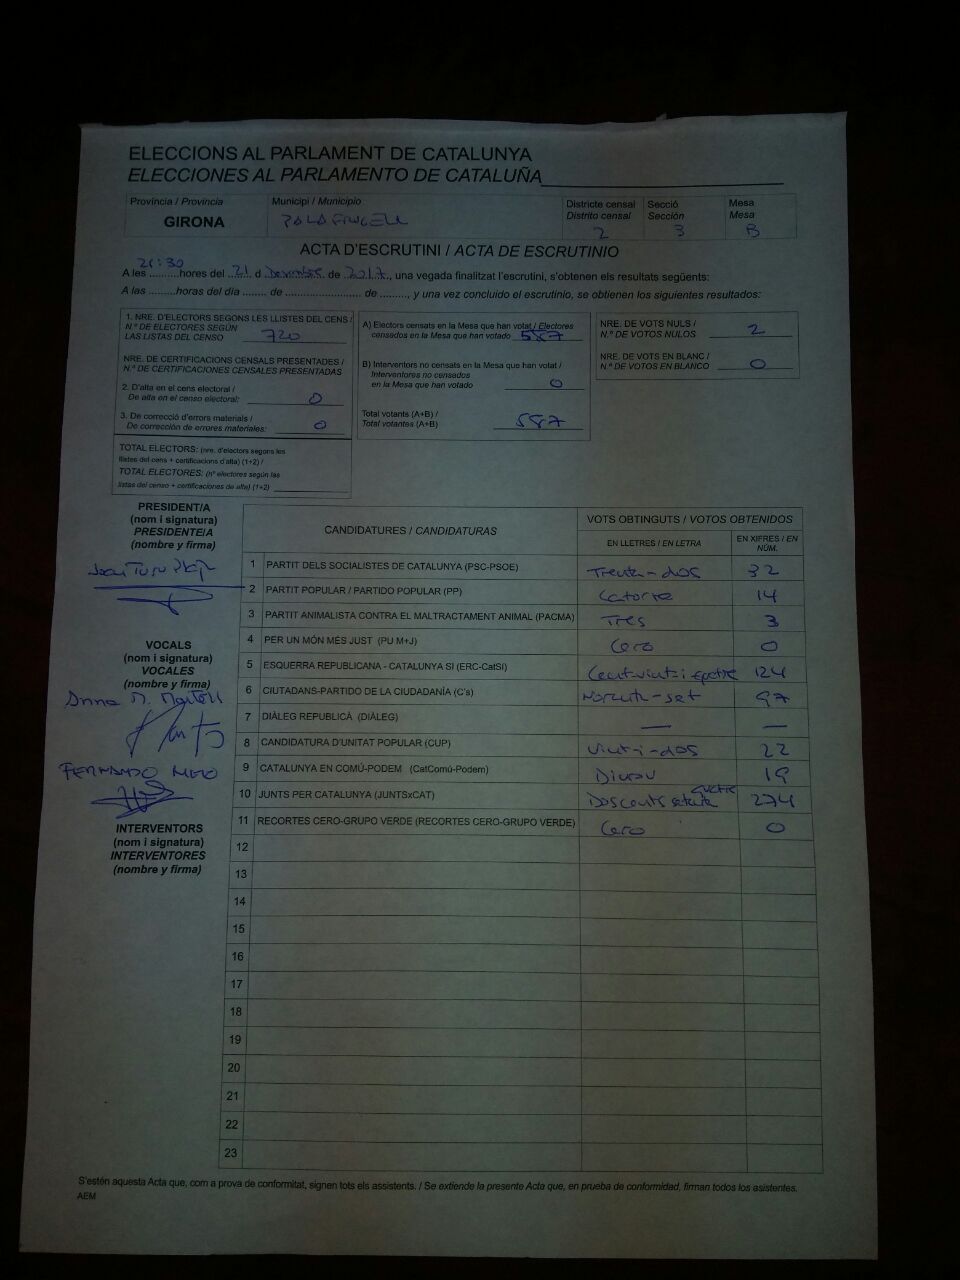 ELECCIONS AL PARLAMENT DE CATALUNYA
ELECCIONES AL PARLAMENTO DE CATALUÑA
Província / Provincia Municipi / Municipio Districte censal Secció Mesa
Distrito censal Sección Mesa
GIRONA PALAFRUGELL 2 3 B
ACTA D'ESCRUTINI / ACTA DE ESCRUTINIO
21:30
A les ..........hores del 21 d Desembre de 2017, una vegada finalitzat l'escrutini, s'obtenen els resultats següents:
A las .........horas del día ........ de .......................... de ........., y una vez concluido el escrutinio, se obtienen los siguientes resultados:
1. NRE. D'ELECTORS SEGONS LES LLISTES DEL CENS /
N.º DE ELECTORES SEGÚN
LAS LISTAS DEL CENSO 720
NRE. DE CERTIFICACIONS CENSALS PRESENTADES /
N.º DE CERTIFICACIONES CENSALES PRESENTADAS
2. D'alta en el cens electoral /
De alta en el censo electoral: 0
3. De correcció d'errors materials /
De corrección de errores materiales: 0
TOTAL ELECTORS: (nre. d'electors segons les
llistes del cens + certificacions d'alta) (1+2) /
TOTAL ELECTORES: (nº electores según las
listas del censo + certificaciones de alta) (1+2)
A) Electors censats en la Mesa que han votat / Electores
censados en la Mesa que han votado 587
B) Interventors no censats en la Mesa que han votat /
Interventores no censados
en la Mesa que han votado 0
Total votants (A+B) /
Total votantes (A+B) 587
NRE. DE VOTS NULS /
N.º DE VOTOS NULOS 2
NRE. DE VOTS EN BLANC /
N.º DE VOTOS EN BLANCO 0
PRESIDENT/A
(nom i signatura)
PRESIDENTE/A
(nombre y firma)
VOCALS
(nom i signatura)
VOCALES
(nombre y firma)
Anna M.
FERNANDO
INTERVENTORS
(nom i signatura)
INTERVENTORES
(nombre y firma)
CANDIDATURES / CANDIDATURAS VOTS OBTINGUTS / VOTOS OBTENIDOS
EN LLETRES / EN LETRA EN XIFRES / EN NÚM.
1 PARTIT DELS SOCIALISTES DE CATALUNYA (PSC-PSOE) Trenta-dos 32
2 PARTIT POPULAR / PARTIDO POPULAR (PP) Catorze 14
3 PARTIT ANIMALISTA CONTRA EL MALTRACTAMENT ANIMAL (PACMA) Tres 3
4 PER UN MÓN MÉS JUST (PU M+J) Cero 0
5 ESQUERRA REPUBLICANA - CATALUNYA SÍ (ERC-CatSí) Cent-vint-i-quatre 124
6 CIUTADANS-PARTIDO DE LA CIUDADANÍA (C's) Noranta-set 97
7 DIÀLEG REPUBLICÀ (DIÀLEG) — —
8 CANDIDATURA D'UNITAT POPULAR (CUP) Vint-i-dos 22
9 CATALUNYA EN COMÚ-PODEM (CatComú-Podem) Dinou 19
10 JUNTS PER CATALUNYA (JUNTSxCAT) Doscents setanta quatre 274
11 RECORTES CERO-GRUPO VERDE (RECORTES CERO-GRUPO VERDE) Cero 0
12
13
14
15
16
17
18
19
20
21
22
23
S'estén aquesta Acta que, com a prova de conformitat, signen tots els assistents. / Se extiende la presente Acta que, en prueba de conformidad, firman todos los asistentes.
AEM